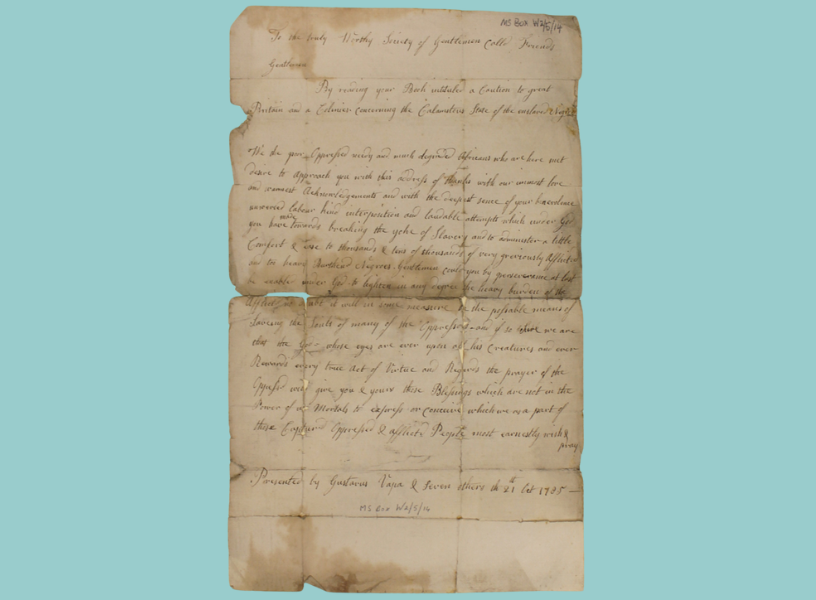 MS Box W2/5/14
To the truly Worthy Society of Gentlemen Calld Friends
Gentlemen
By reading your Book intituled a Caution to great
Britain and a Colonies concerning the Calamitous State of the enslaved
We the poor Oppressed needy and much degraded Africans who are here met
desire to approach you with this address of thanks with our inmost love
and warmest Acknowledgements and with the deepest sense of your benevolence
unweried labour kind interposition and laudable attempts which under God
you have made towards breaking the yoke of Slavery and to administer a little
Comfort & ease to thousands & tens of thousands of very greviously Afflicted
and too heavy Burthend Negroes. Gentlemen could you by perseverance at last
be enabled under God to lighten in any degree the heavy burden of the
Afflicted it will in some measure be the possible means of
Saveing the Souls of many of the Oppressors and if so we are
that the God whose eyes are ever upon all his Creatures and ever
Rewards every true Act of Virtue and Regards the prayer of the
Oppressd will give you & yours those Blessings which are not in the
Power of us Mortals to express or conceive which we as a part of
those Captured Oppressed & afflicted People most earnestly wish &
pray
Presented by Gustavus Vasa & Seven others the 21th Oct 1785 —
MS Box W2/5/14